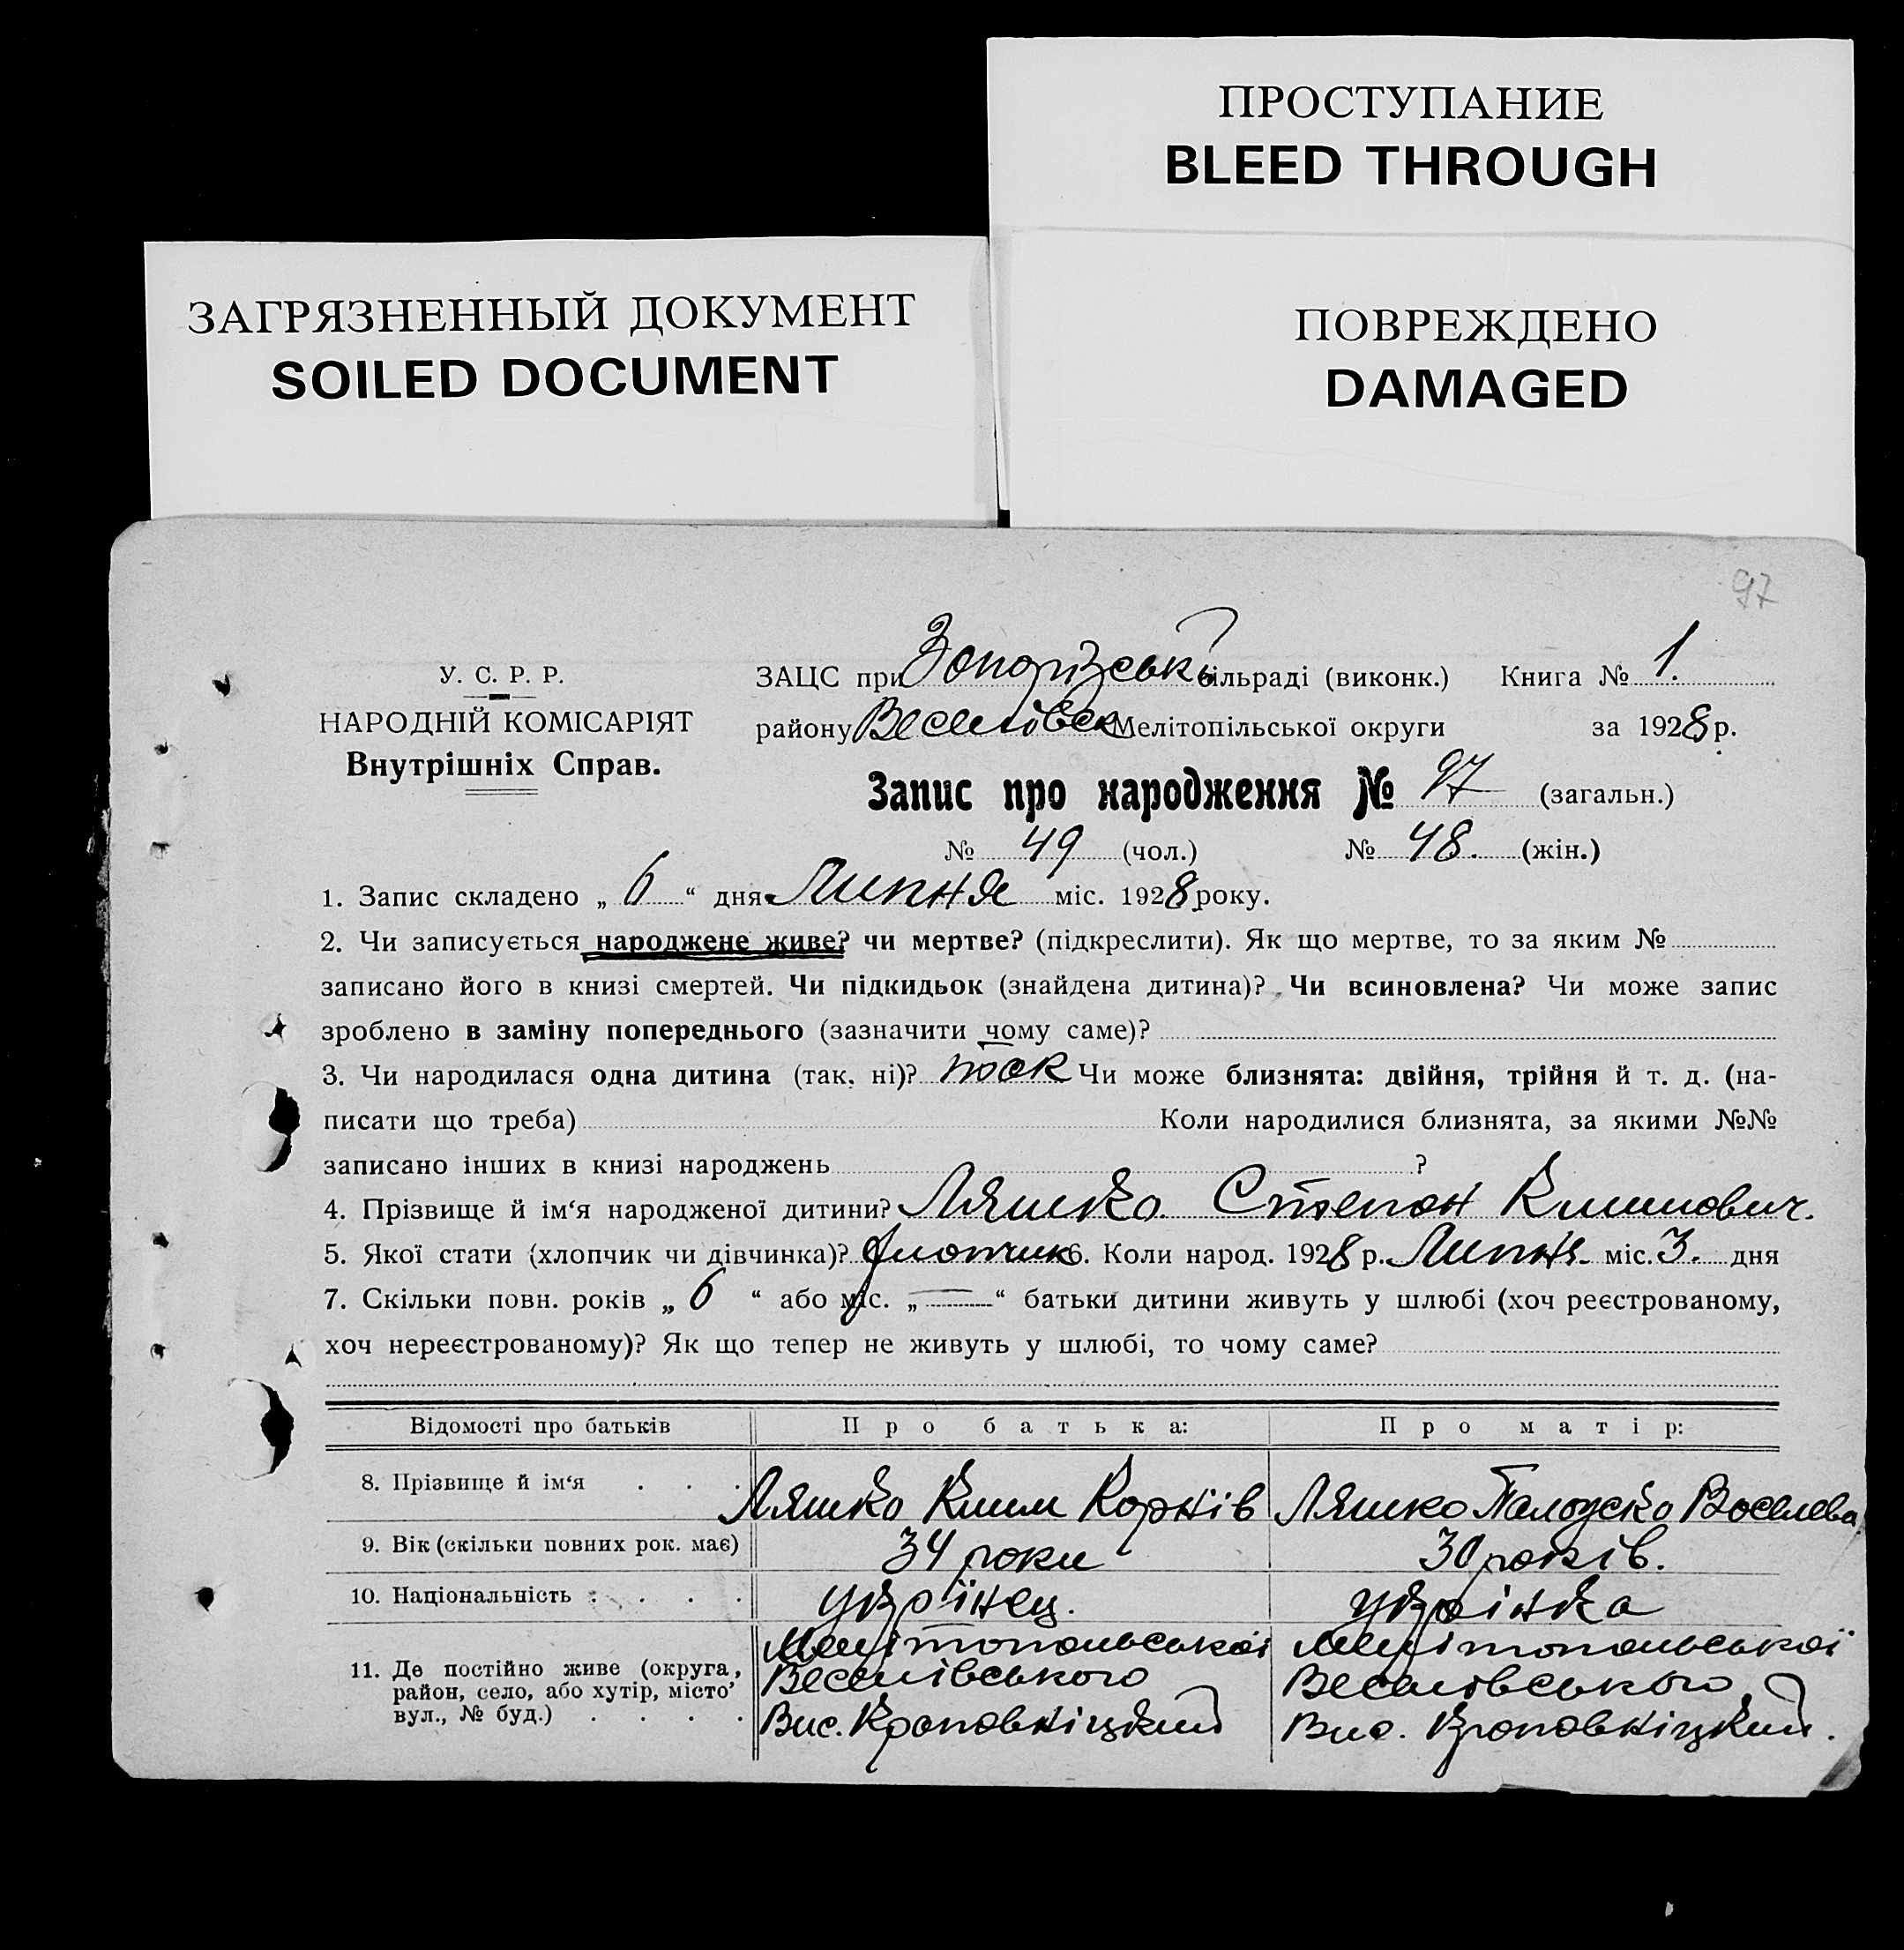 ПРОСТУПАНИЕ
BLEED THROUGH
ЗАГРЯЗНЕННЫЙ ДОКУМЕНТ
SOILED DOCUMENT
ПОВРЕЖДЕНО
DAMAGED
97
У. С. Р. Р.
НАРОДНІЙ КОМІСАРІЯТ
Внутрішніх Справ.
ЗАЦС при Запорізській сільраді (виконк.) Книга № 1.
району Веселівск Мелітопільської округи за 1928 р.
Запис про народження № 97 (загальн.)
№ 49 (чол.) № 48. (жін.)
1. Запис складено „ 6 “ дня Липня міс. 1928 року.
2. Чи записується народжене живе? чи мертве? (підкреслити). Як що мертве, то за яким №
записано його в книзі смертей. Чи підкидьок (знайдена дитина)? Чи всиновлена? Чи може запис
зроблено в заміну попереднього (зазначити чому саме)?
3. Чи народилася одна дитина (так, ні)? так Чи може близнята: двійня, трійня й т. д. (на-
писати що треба) Коли народилися близнята, за якими №№
записано інших в книзі народжень ?
4. Прізвище й ім‘я народженої дитини? Ляшко Степан Климович.
5. Якої стати (хлопчик чи дівчинка)? хлопчик 6. Коли народ. 1928 р. Липня міс. 3. дня
7. Скільки повн. років „ 6 “ або міс. „ — “ батьки дитини живуть у шлюбі (хоч реєстрованому,
хоч нереєстрованому)? Як що тепер не живуть у шлюбі, то чому саме?
Відомості про батьків Про батька: Про матір:
8. Прізвище й ім‘я . . . Ляшко Клим Корнів Ляшко Васелева
9. Вік (скільки повних рок. має) 34 роки 30 років.
10. Національність . . . . українец. українка
11. Де постійно живе (округа, район, село, або хутір, місто’ вул., № буд.) . . . .
Мелітопольської Мелітопольської
Веселівського Веселівського
Вис. Кроповніцкий Вис. Кроповніцкий.